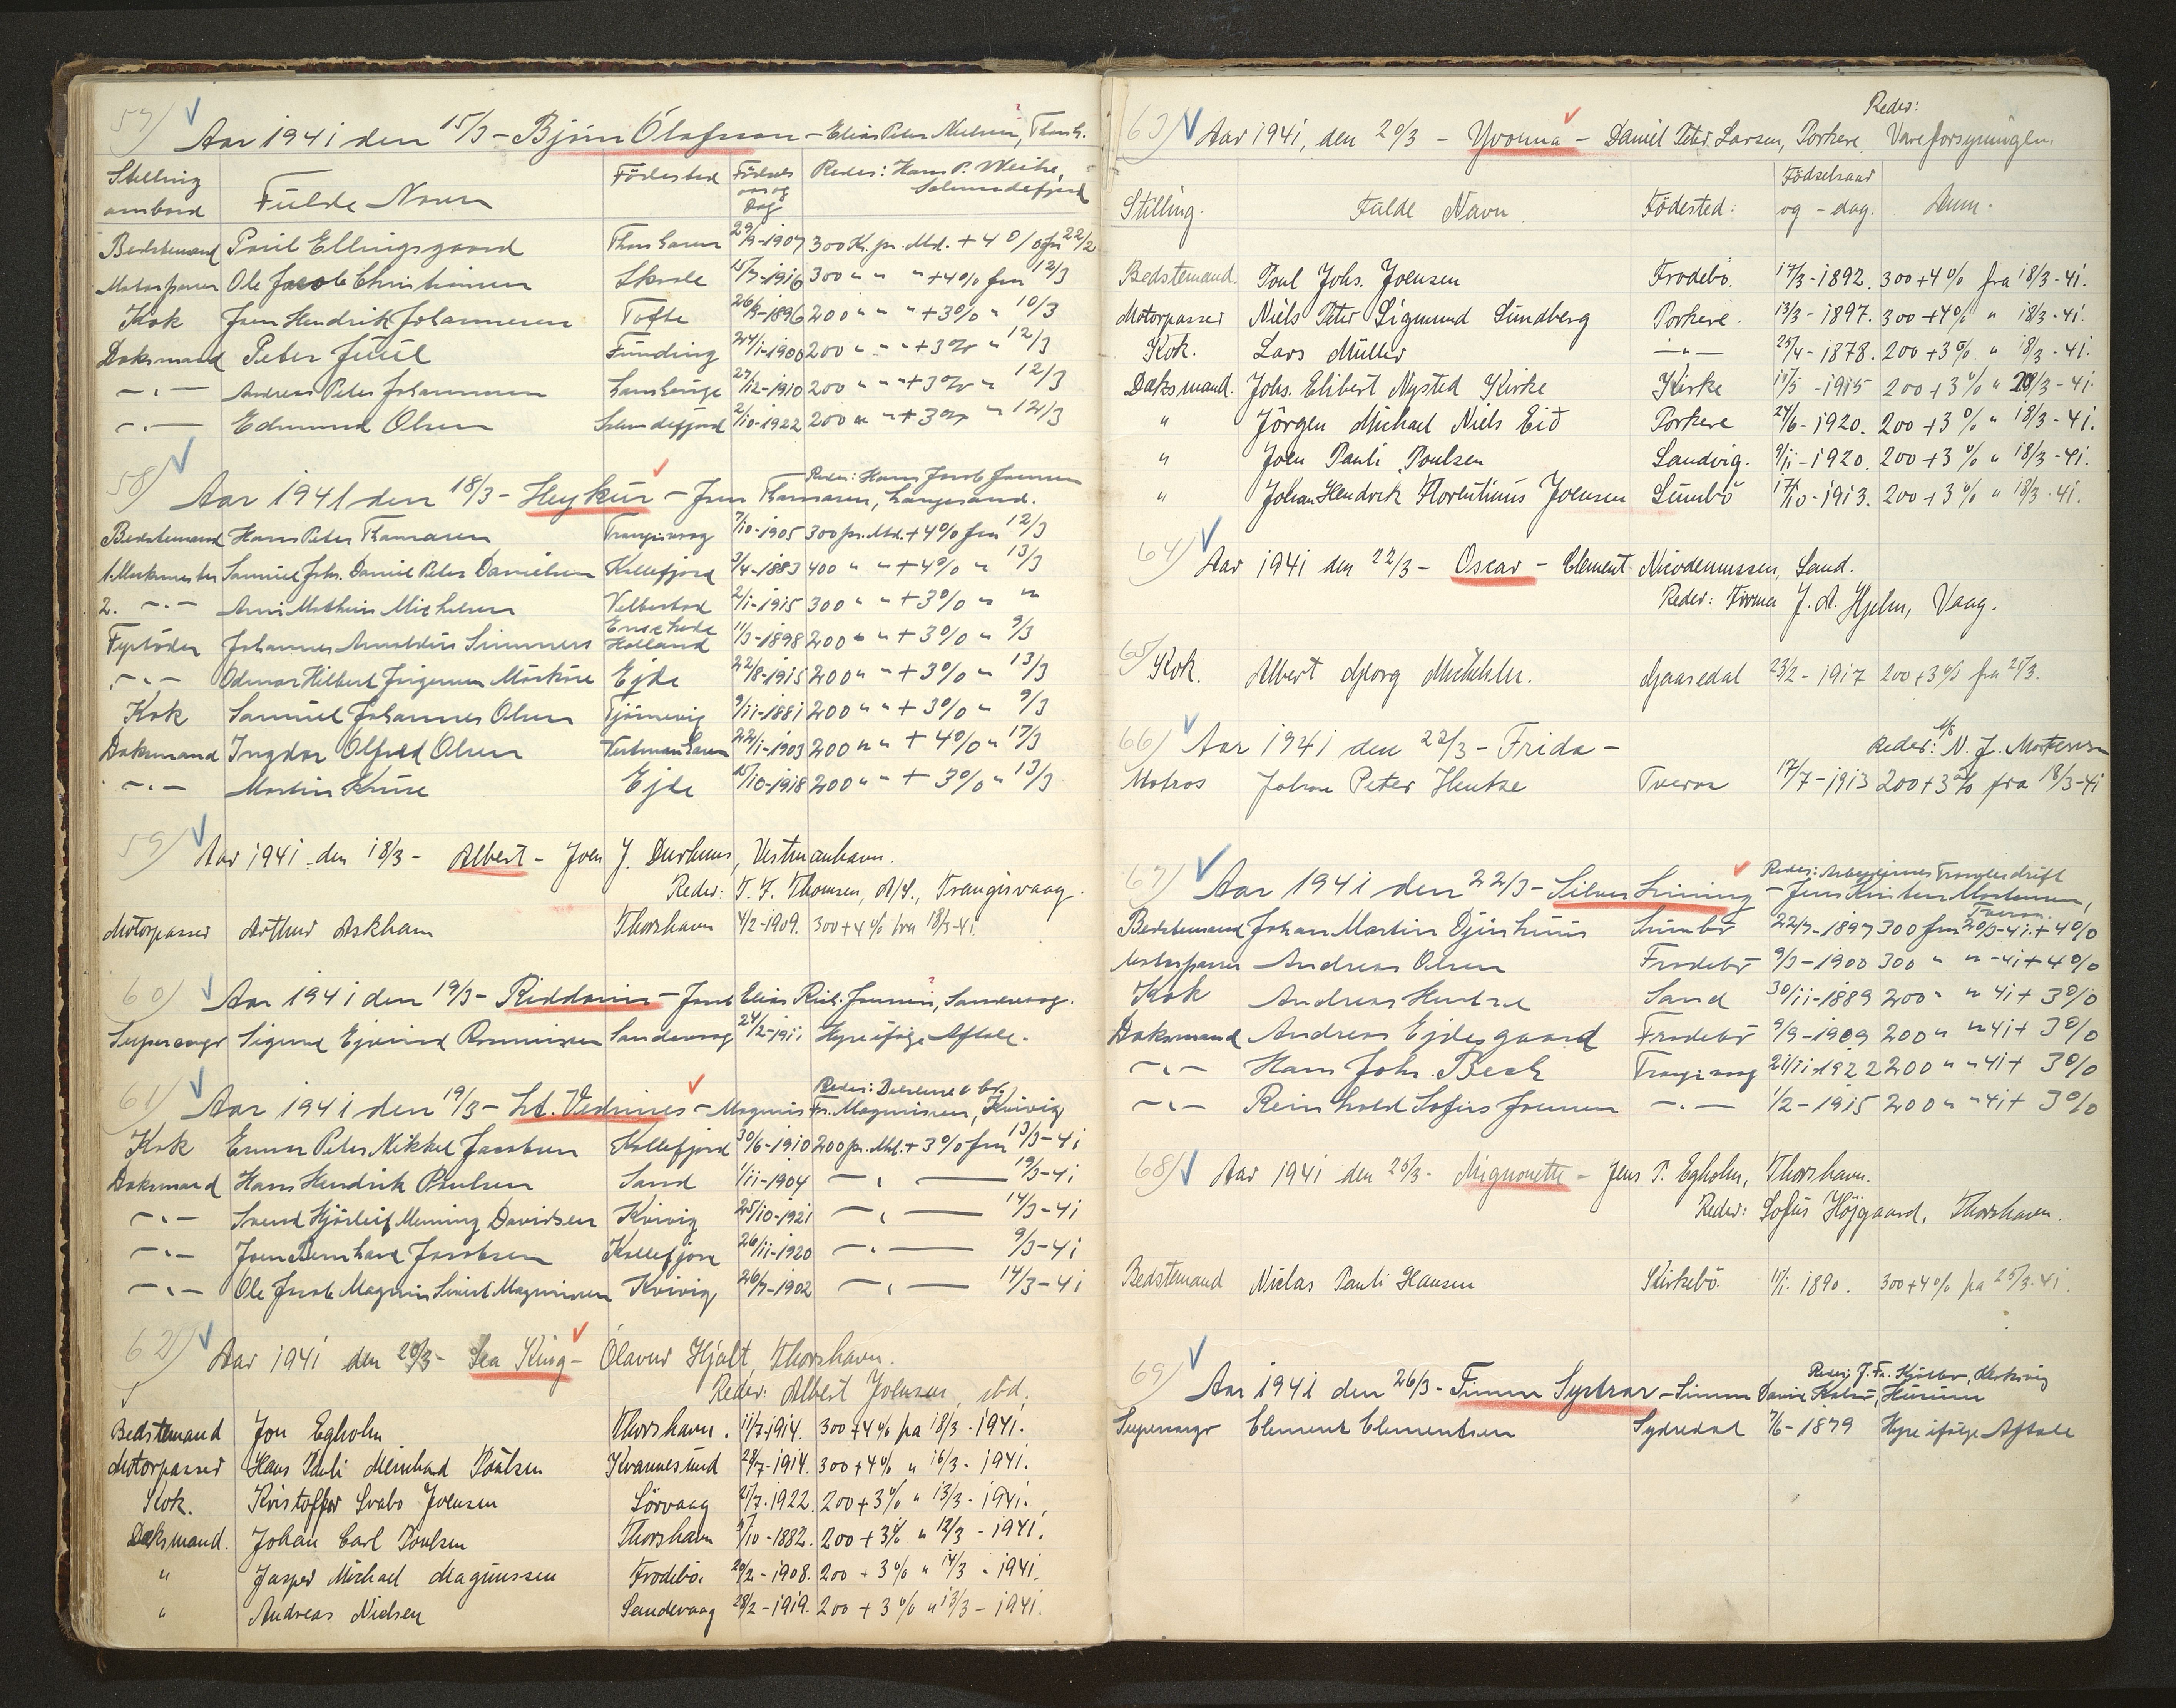 57) Aar 1941 den 15/3 - Björn Ólafsson - Elias Peter Nielsen, Thorsh.
Stilling ombord Fulde Navn Födested Födsels aar og Dag Reder: Hans P. Weihe, Selmundefjord
Bedstemand Poul Ellingsgaard Thorshavn 29/9-1907 300 Kr. pr. Md. + 4% fra 22/2
Motorpasser Ole Jacob Christiansen Skaale 15/7-1916 300 " " " + 4% fra 12/3
Kok Joen Hendrik Johannesen Tofte 26/9-1896 200 " " " + 3% " 10/3
Dæksmand Peter Juul Funding 24/1-1900 200 " " " + 3% " 12/3
-"- Andreas Peter Johannesen Lamhauge 27/12-1910 200 " " " + 3% " 12/3
-"- Edmund Olsen Selmundefjord 2/10-1922 200 " " + 3% " 12/3
58) Aar 1941 den 18/3 - Heykur - Jens Thomasen, Langesand.
Reder: Hans Jacob Jensen
Bedstemand Hans Peter Thomasen Trangisvaag 7/10-1905 300 pr. Md. + 4% fra 12/3
1. Maskinmester Samuel Joh. Daniel Peter Danielsen Kollefjord 3/4-1883 400 " " + 4% " 13/3
2. -"- Arni Mathias Michelsen Velbestad 2/1-1915 300 " " + 3% " "
Fyrböder Johannes Arnoldus Simmers Enschede Holland 11/3-1898 200 " " + 3% " 9/3
-"- Odmar Hilbert Jörgensen Mörköre Ejde 22/8-1915 200 " " + 3% " 13/3
Kok Samuel Johannes Olsen Tjörnevig 9/11-1881 200 " " + 3% " 9/3
Dæksmand Ingdor Olfred Olsen Vestmanhavn 22/1-1903 200 " " + 4% " 17/3
-"- Martin Kruse Ejde 15/10-1918 200 " " + 3% " 13/3
59) Aar 1941 den 18/3 - Albert - Joen J. Durhuus, Vestmanhavn.
Reder: T. F. Thomsen, A/S., Trangisvaag.
Motorpasser Arthur Askham Thorshavn 4/2-1909. 300 + 4% fra 18/3-41.
60) Aar 1941 den 19/3 - Riddarin - Elias Rich. Joensen, Sandevaag.
Supercargo Sigurd Ejvind Rasmussen Sandevaag 24/2-1911 Hyre ifølge Aftale.
61) Aar 1941 den 19/3 - Lt. Vedrines - Magnus Fr. Magnussen, Kvivig
Kok Ennar Peter Nikkel Jacobsen Kollefjord 30/6-1910 200 pr. Md. + 3% fra 13/3-41
Dæksmand Hans Hendrik Poulsen Sand 1/11-1904 -"- 19/3-41
-"- Svend Hjörleif Menning Davidsen Kvivig 25/10-1921 -"- 14/3-41
-"- Joen Bernhard Jacobsen Kollefjord 26/11-1920 -"- 9/3-41
-"- Ole Jacob Magnus Sivert Magnussen Kvivig 26/7-1902 -"- 14/3-41
62) Aar 1941 den 20/3 - Sea King - Ólavur Hjalt, Thorshavn.
Reder: Albert Joensen, sbd,
Bedstemand Jon Egholm Thorshavn. 11/7-1914. 300 + 4% fra 18/3-1941.
Motorpasser Hans Pauli Meinhard Poulsen Kvannesund 28/7-1914. 300 + 4% " 16/3-1941.
Kok. Kristoffer Svabo Joensen Sörvaag 27/7-1922. 200 + 3% " 13/3-1941.
Dæksmand. Johan Carl Poulsen Thorshavn 9/10-1882. 200 + 3% " 12/3-1941.
" Jasper Michael Magnussen Frodebö. 20/2-1908. 200 + 3% " 14/3-1941.
" Andreas Nielsen Sandevaag 28/2-1919. 200 + 3% " 13/3-1941.
63) Aar 1941, den 20/3 - Yvonna - Daniel Peter Larsen, Porkere. Reder: Vareforsyningen.
Stilling. Fulde Navn. Födested: Födselsaar og - dag.
Bedstemand. Poul Johs. Joensen Frodebö. 17/3-1892. 300 + 4% fra 18/3-41.
Motorpasser Niels Peter Sigmund Sundberg Porkere. 13/3-1897. 300 + 4% " 18/3-41.
Kok. Lars Müller -"- 25/4-1878. 200 + 3% " 18/3-41.
Dæksmand. Johs. Elibert Nysted Kirke Kirke 17/5-1915 200 + 3% " 20/3-41.
" Jörgen Michael Niels Eið Porkere 24/6-1920. 200 + 3% " 18/3-41.
" Joen Pauli Poulsen Sandvig. 9/11-1920. 200 + 3% " 18/3-41.
" Johan Hendrik Florentinus Joensen Sumbö 17/10-1913. 200 + 3% " 18/3-41.
64) Aar 1941 den 22/3 - Oscar - Clement Nicodemussen, Sand.
Reder: Firma J. A. Hjelm, Vaag.
65) Kok. Albert Georg Michelsen. Gaasedal 23/2-1917 200 + 3% fra 21/3.
66) Aar 1941 den 22/3 - Frida - Reder: A/S N. J. Mortensen
Matros Johan Peter Hentze Tveraa 17/7-1913 200 + 3% fra 18/3-41
67) Aar 1941 den 22/3 - Silver Lining - Jens Kristen Mortensen, Tveraa.
Reder: Arbejdernes Trawlerdrift
Bedstemand Johan Martin Djurhuus Sumbö 22/7-1897 300 fra 20/3-41. + 4%
Motorpasser Andreas Olsen Frodebö 9/3-1900 300 " " -41 + 4%
Kok Andreas Hentze Sand 30/11-1889 200 " " 41 + 3%
Dæksmand Andreas Ejdesgaard Frodebö 9/9-1909 200 " " 41 + 3%
-"- Hans Joh. Beck Trangisvaag 21/11-1922 200 " " 41 + 3%
-"- Reinhold Sofus Joensen -"- 1/2-1915 200 " " 41 + 3%
68) Aar 1941 den 25/3 - Mignonette - Jens P. Egholm, Thorshavn.
Reder: Sofus Höjgaard, Thorshavn.
Bedstemand Niclas Pauli Hansen Kirkebö 11/1. 1890. 300 + 4% fra 25/3-41.
69) Aar 1941 den 26/3 - Fimm Systrar - Simun David Kalsö, Husum
Reder: J. Fr. Kjölbro, Klaksvig
Supercargo Clement Clementsen Sydredal 7/6-1879 Hyre ifølge Aftale